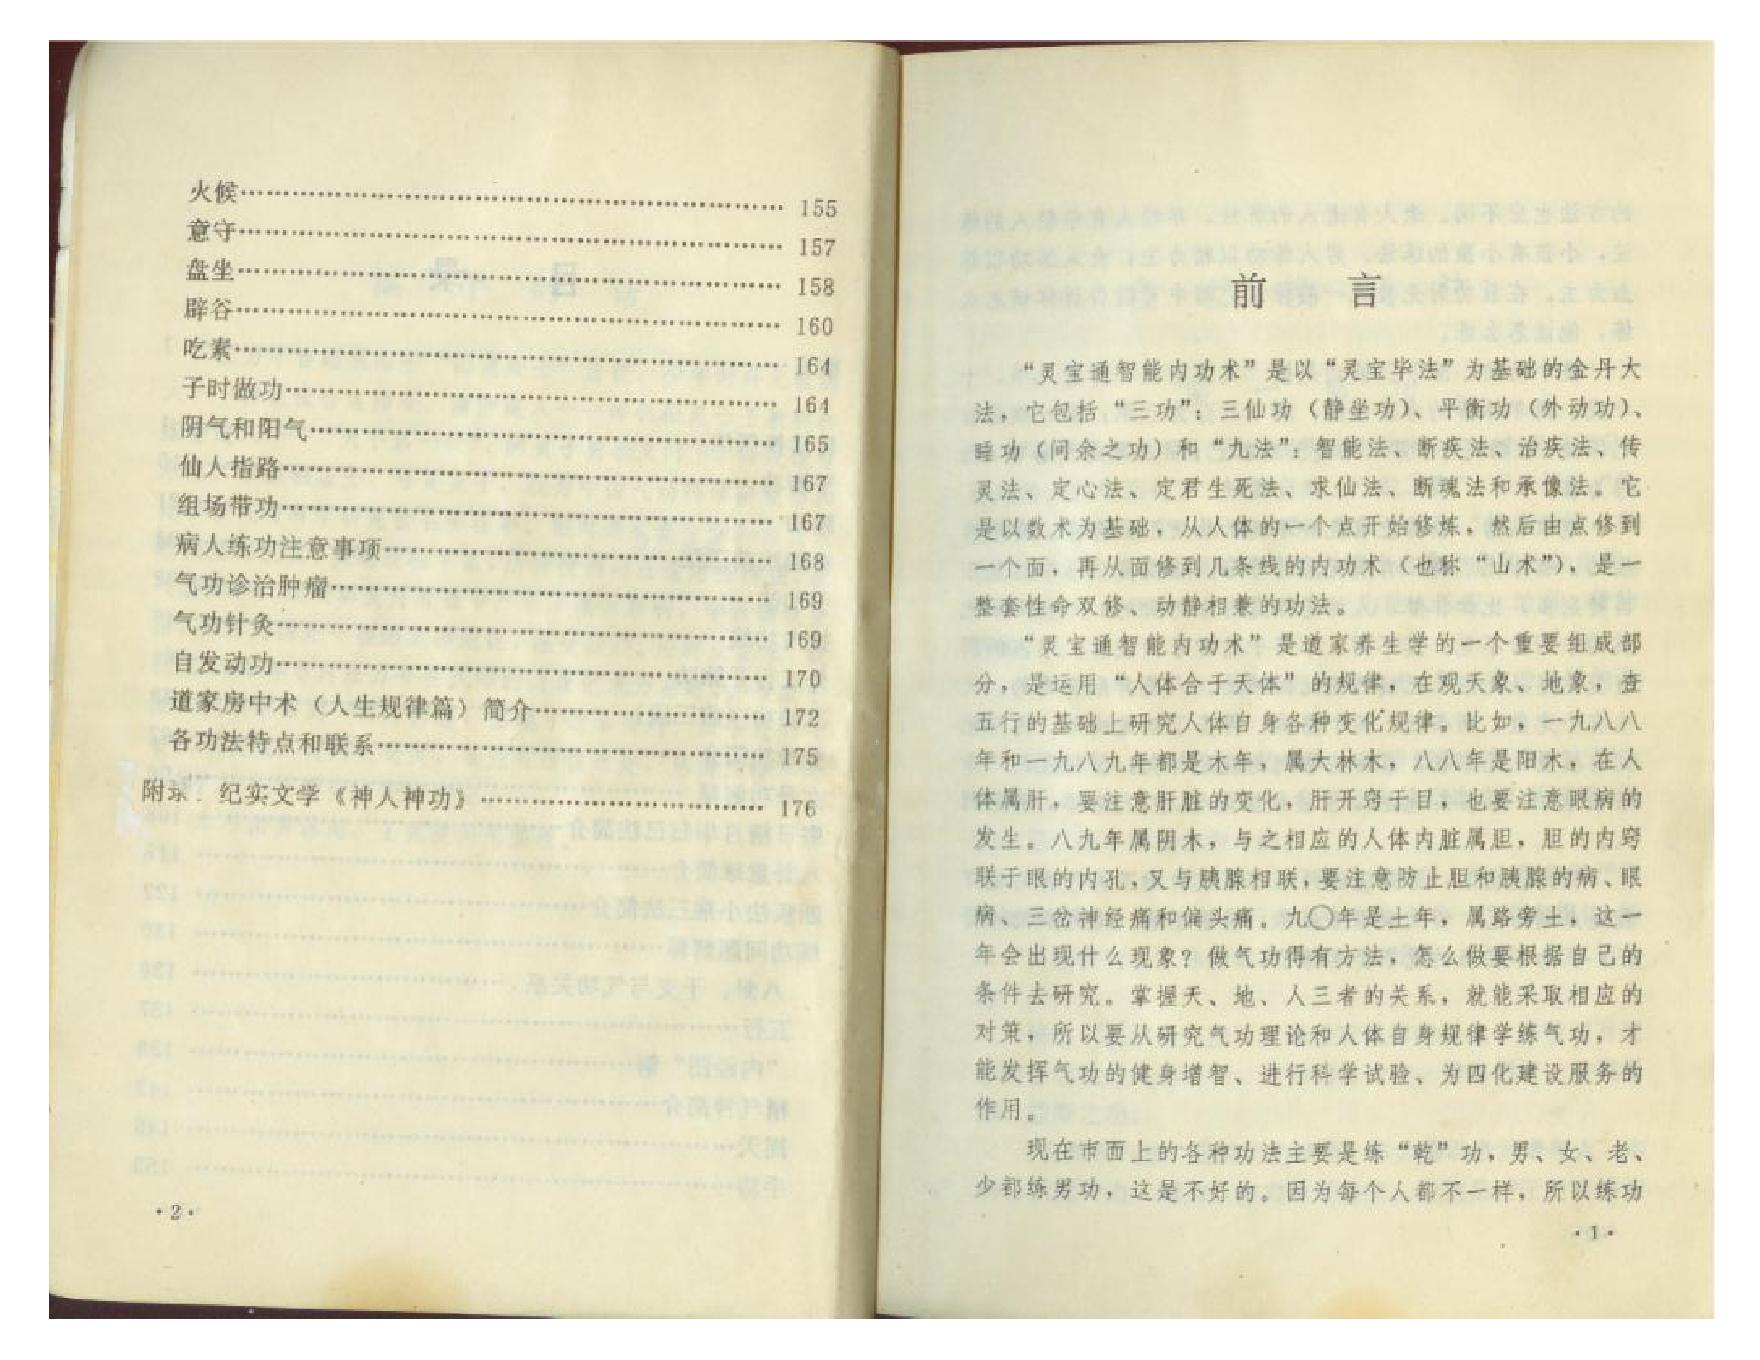 火候…………………………………………………… 155
意守…………………………………………………… 157
盘坐…………………………………………………… 158
辟谷…………………………………………………… 160
吃素…………………………………………………… 164
子时做功……………………………………………… 164
阴气和阳气…………………………………………… 165
仙人指路……………………………………………… 167
组场带功……………………………………………… 167
病人练功注意事项…………………………………… 168
气功诊治肿瘤………………………………………… 169
气功针灸……………………………………………… 169
自发动功……………………………………………… 170
道家房中术（人生规律篇）简介…………………… 172
各功法特点和联系…………………………………… 175
附录 纪实文学《神人神功》………………………… 176
·2·
前 言
“灵宝通智能内功术”是以“灵宝毕法”为基础的金丹大
法，它包括“三功”：三仙功（静坐功）、平衡功（外动功）、
睡功（间余之功）和“九法”：智能法、断疾法、治疾法、传
灵法、定心法、定君生死法、求仙法、断魂法和承像法。它
是以数术为基础，从人体的一个点开始修炼，然后由点修到
一个面，再从面修到几条线的内功术（也称“山术”），是一
整套性命双修、动静相兼的功法。
“灵宝通智能内功术”是道家养生学的一个重要组成部
分，是运用“人体合于天体”的规律，在观天象、地象，查
五行的基础上研究人体自身各种变化规律。比如，一九八八
年和一九八九年都是木年，属大林木，八八年是阳木，在人
体属肝，要注意肝脏的变化，肝开窍于目，也要注意眼病的
发生。八九年属阴木，与之相应的人体内脏属胆，胆的内窍
联于眼的内孔，又与胰腺相联，要注意防止胆和胰腺的病、眼
病、三岔神经痛和偏头痛。九〇年是土年，属路旁土，这一
年会出现什么现象？做气功得有方法，怎么做要根据自己的
条件去研究。掌握天、地、人三者的关系，就能采取相应的
对策，所以要从研究气功理论和人体自身规律学练气功，才
能发挥气功的健身增智、进行科学试验、为四化建设服务的
作用。
现在市面上的各种功法主要是练“乾”功，男、女、老、
少都练男功，这是不好的。因为每个人都不一样，所以练功
·1·